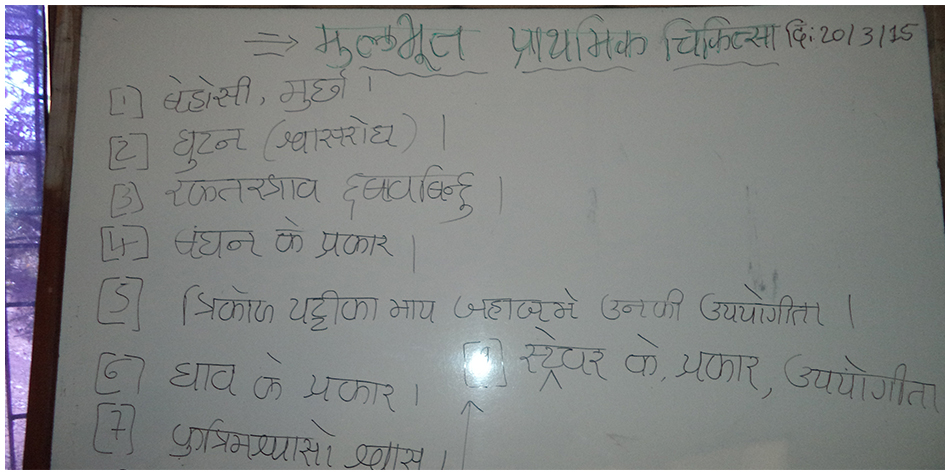 ⇒ मुलभूत प्राथमिक चिकित्सा दि: 20/3/15
[1] बेहोसी, मुर्छा ।
[2] घुटन (श्वासरोध) ।
[3] रक्तस्त्राव दबावबिन्दु ।
[4] बंधन के प्रकार ।
[5] त्रिकोण पट्टीका माप उनकी उपयोगीता ।
[6] घाव के प्रकार ।
स्ट्रेचर के, प्रकार, उपयोगीता
[7] श्वास ।